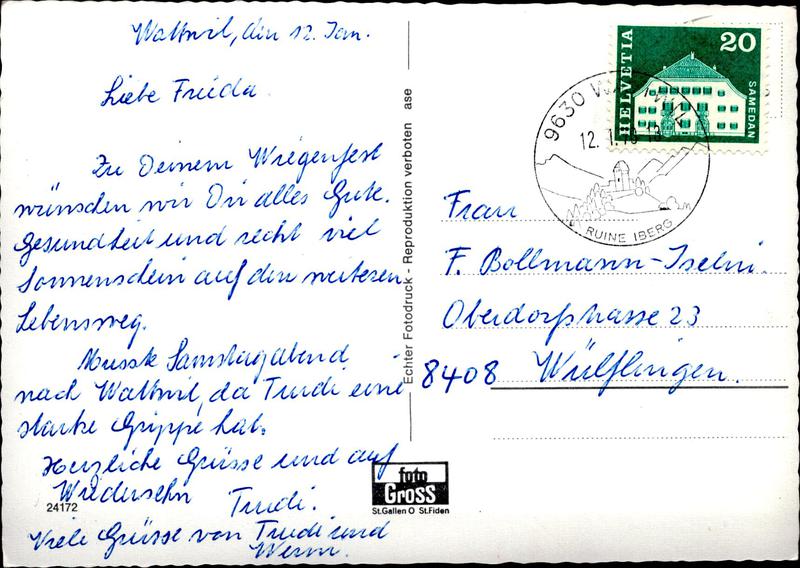 Wattwil, den 12. Jan.
Liebe Frieda
Zu Deinem Wiegenfest
wünschen wir Dir alles Gute.
Gesundheit und recht viel
Sonnenschein auf den weiteren
Lebensweg.
Musste Samstagabend
nach Wattwil, da Trudi eine
starke Grippe hat.
Herzliche Grüsse und auf
Wiedersehn Trudi.
Viele Grüsse von Trudi und
Wern.
24172
Echter Fotodruck - Reproduktion verboten ase
foto
Gross
St.Gallen O St.Fiden
HELVETIA
20
SAMEDAN
9630 WATTWIL
12. 1.
RUINE IBERG
Frau
F. Bollmann-Iselin.
Oberdorfstrasse 23
8408 Wülflingen.